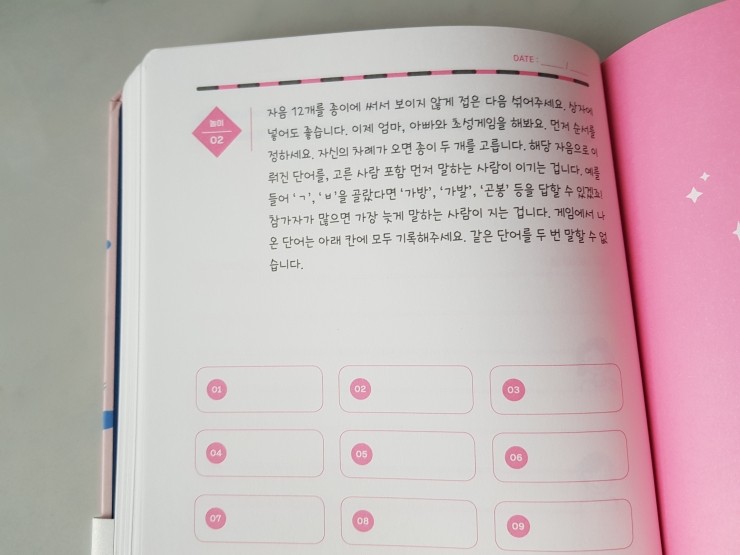 DATE : ____ / ____
놀이
02
자음 12개를 종이에 써서 보이지 않게 접은 다음 섞어주세요. 상자에
넣어도 좋습니다. 이제 엄마, 아빠와 초성게임을 해봐요. 먼저 순서를
정하세요. 자신의 차례가 오면 종이 두 개를 고릅니다. 해당 자음으로 이
뤄진 단어를, 고른 사람 포함 먼저 말하는 사람이 이기는 겁니다. 예를
들어 ‘ㄱ’, ‘ㅂ’을 골랐다면 ‘가방’, ‘가발’, ‘곤봉’ 등을 답할 수 있겠죠!
참가자가 많으면 가장 늦게 말하는 사람이 지는 겁니다. 게임에서 나
온 단어는 아래 칸에 모두 기록해주세요. 같은 단어를 두 번 말할 수 없
습니다.
01 02 03
04 05 06
07 08 09